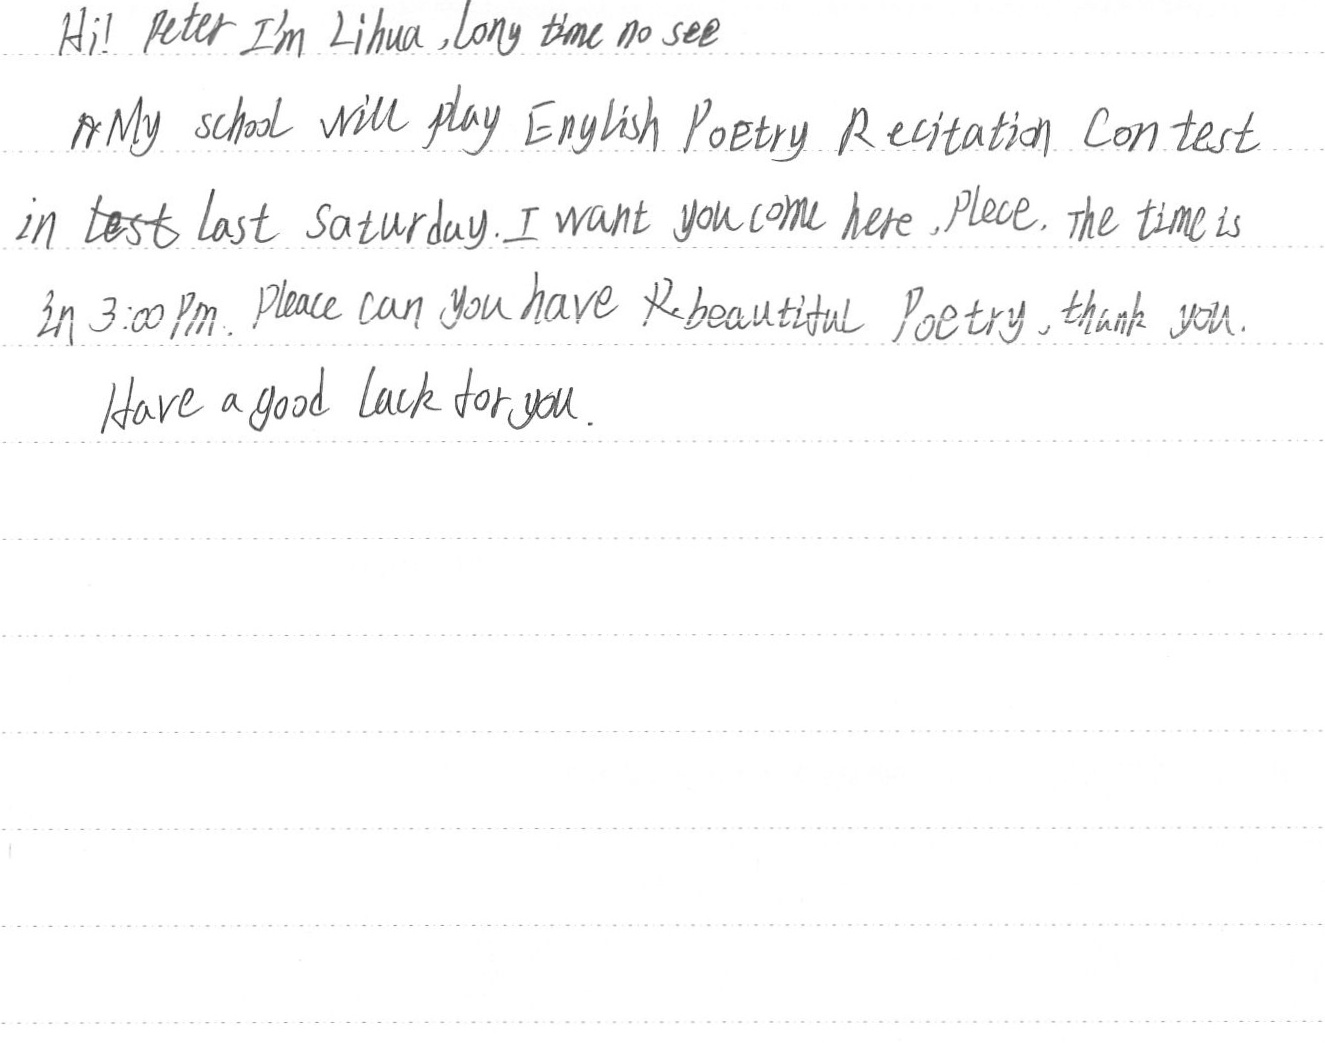 Hi! Peter I'm Lihua, long time no see
My school will play English Poetry Recitation Contest
in test last Saturday. I want you come here, Plece. The time is
in 3:00 Pm. Pleace can you have beautiful Poetry, thank you.
Have a good lack for you.